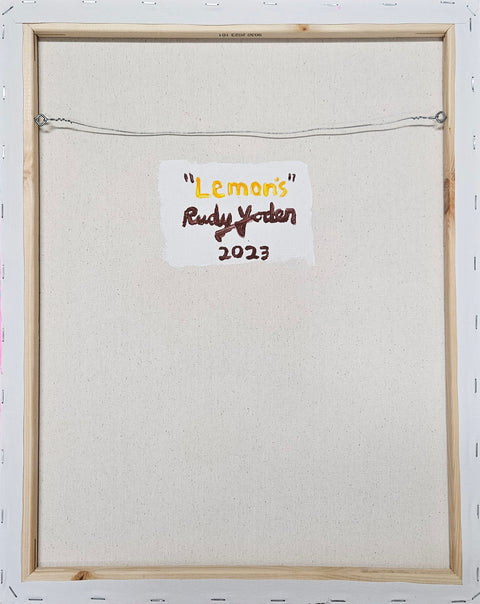 "Lemon's"
Rudy Yoder
2023